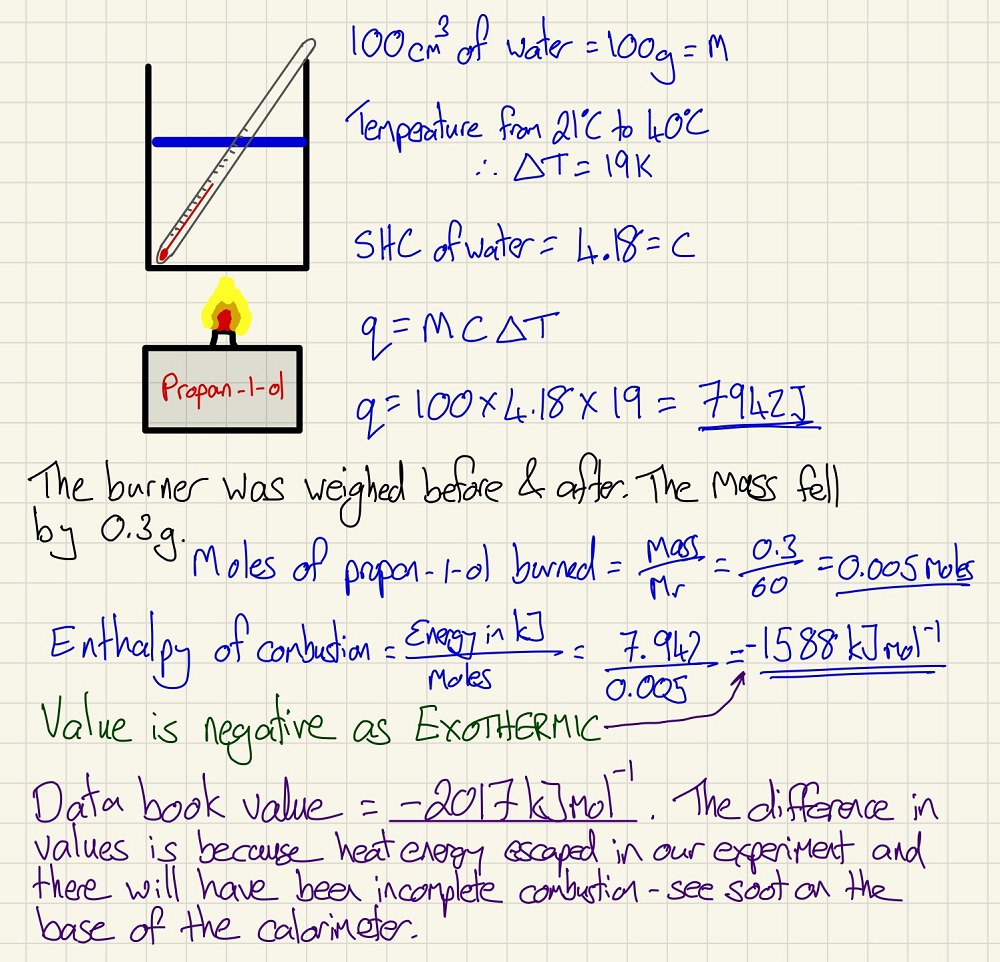 100cm³ of water = 100g = M
Temperature from 21°C to 40°C
∴ ΔT = 19K
SHC of water = 4.18 = C
q = M C Δ T
Propan-1-ol
q = 100 × 4.18 × 19 = 7942J
The burner was weighed before & after. The Mass fell
by 0.3g.
Moles of propan-1-ol burned = Mass/Mr = 0.3/60 = 0.005 Moles
Enthalpy of combustion = Energy in kJ/Moles = 7.942/0.005 = -1588 kJ mol⁻¹
Value is negative as EXOTHERMIC
Data book value = -2017 kJ mol⁻¹. The difference in
values is because heat energy escaped in our experiment and
there will have been incomplete combustion - see soot on the
base of the calorimeter.